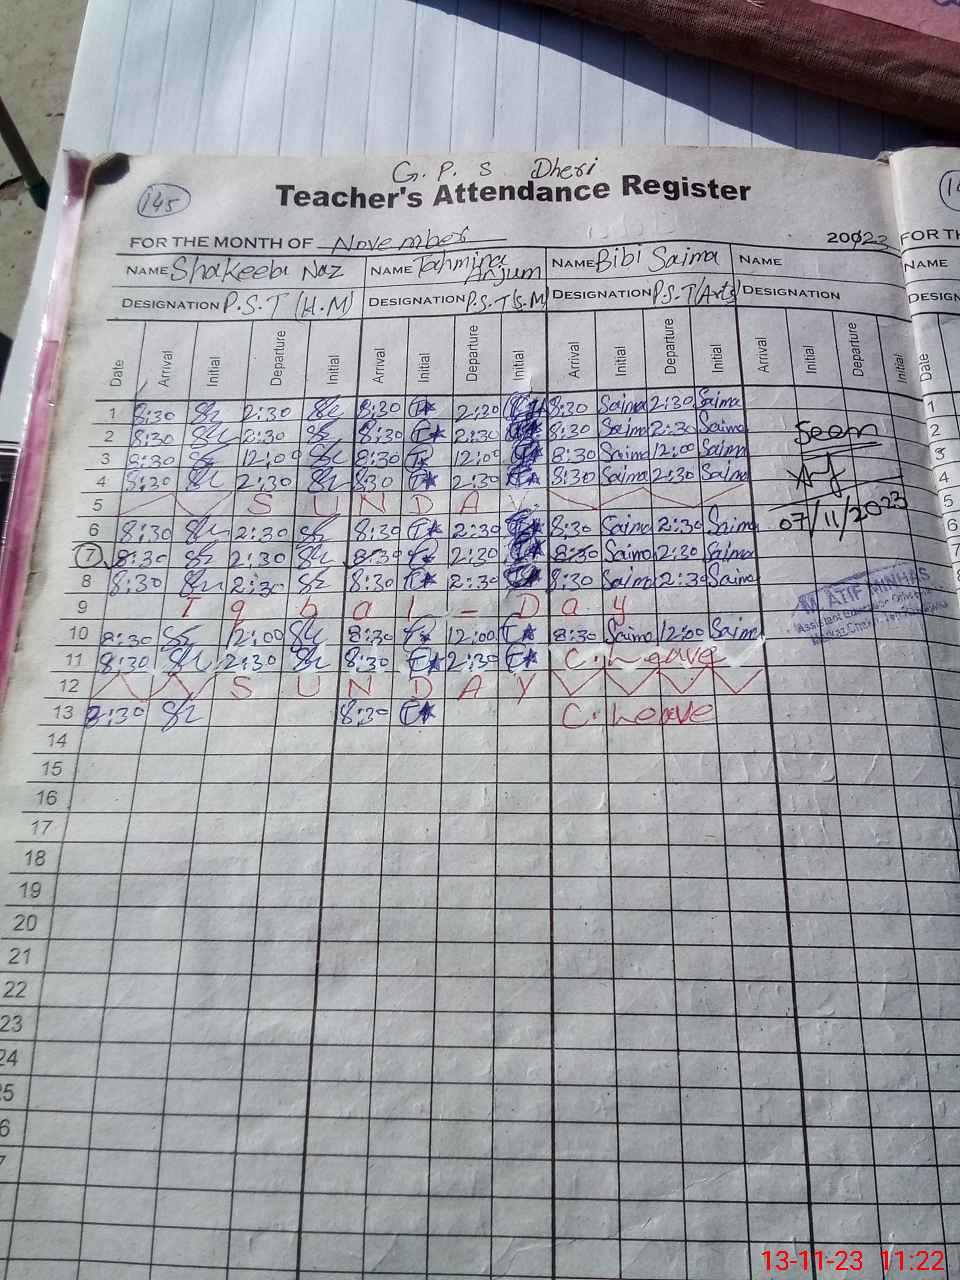 G. P. S Dheri
145
Teacher's Attendance Register
FOR THE MONTH OF November 20023 FOR TH
NAME Shakeeba Naz NAME Tahmina Anjum NAME Bibi Saima NAME NAME
DESIGNATION P.S.T (H.M) DESIGNATION P.S.T(S.M) DESIGNATION P.S.T(Arts) DESIGNATION DESIGN
Date Arrival Initial Departure Initial Arrival Initial Departure Initial Arrival Initial Departure Initial Arrival Initial Departure Initial Date
1 8:30 2:30 8:30 2:30 8:30 Saima 2:30 Saima 1
2 8:30 2:30 8:30 2:30 8:30 Saima 2:30 Saima Seen 2
3 8:30 12:00 8:30 12:00 8:30 Saima 12:00 Saima 3
4 8:30 2:30 8:30 2:30 8:30 Saima 2:30 Saima 4
5 S U N D A Y 07/11/2023 5
6 8:30 2:30 8:30 2:30 8:30 Saima 2:30 Saima 6
7 8:30 2:30 8:30 2:30 8:30 Saima 2:30 Saima 7
8 8:30 2:30 8:30 2:30 8:30 Saima 2:30 Saima
9 I q b a l - D a y
ATIF MINHAS
10 8:30 12:00 8:30 12:00 8:30 Saima 12:00 Saima
11 8:30 2:30 8:30 2:30 C. Leave
12 S U N D A Y
13 8:30 8:30 C. Leave
14
15
16
17
18
19
20
21
22
23
24
13-11-23 11:22